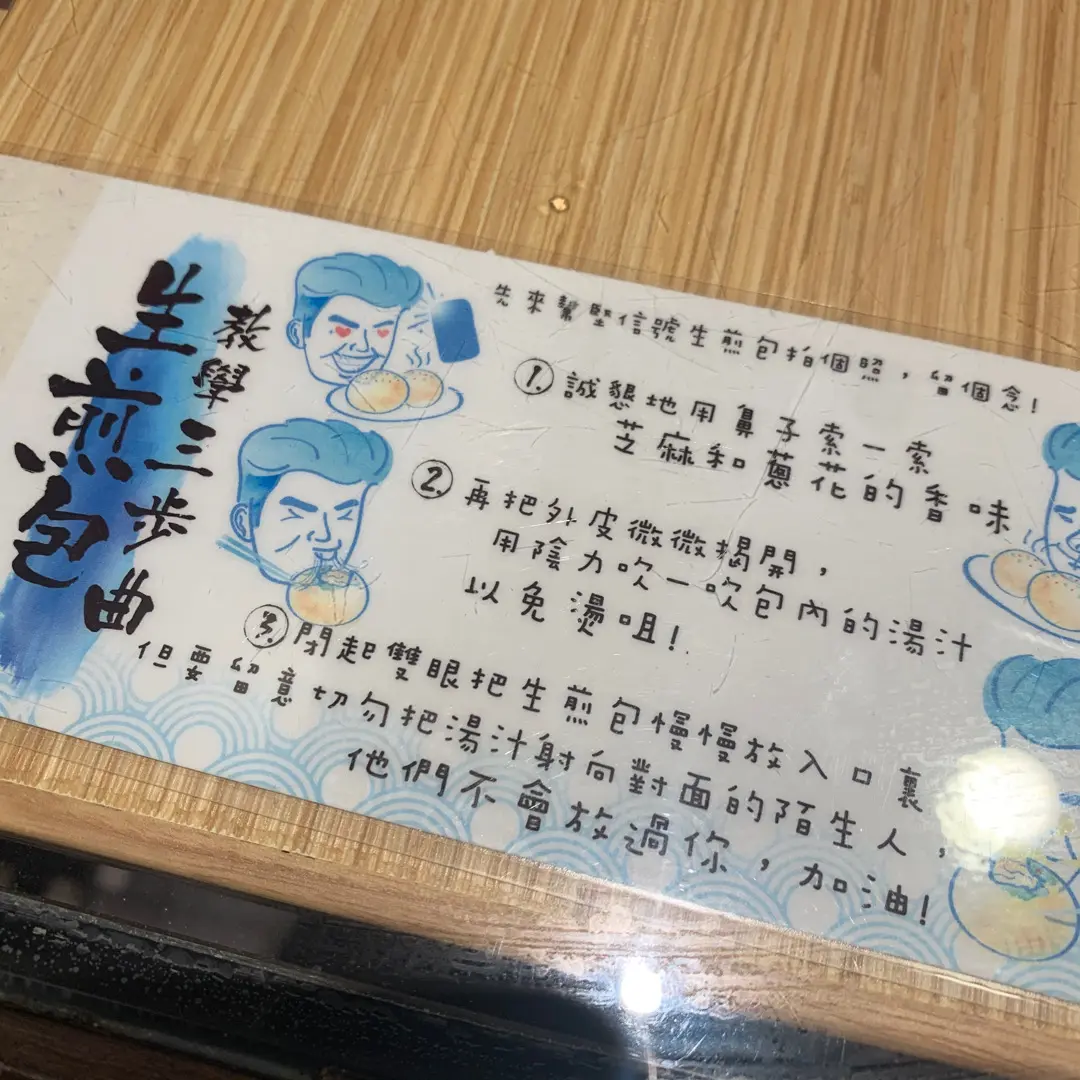 生煎包
教學三步曲
先來幫堅信號生煎包拍個照，留個念！
1. 誠懇地用鼻子索一索
芝麻和蔥花的香味
2. 再把外皮微微揭開，
用陰力吹一吹包內的湯汁
以免燙咀！
3. 閉起雙眼把生煎包慢慢放入口裏
但要留意切勿把湯汁射向對面的陌生人，
他們不會放過你，加油！